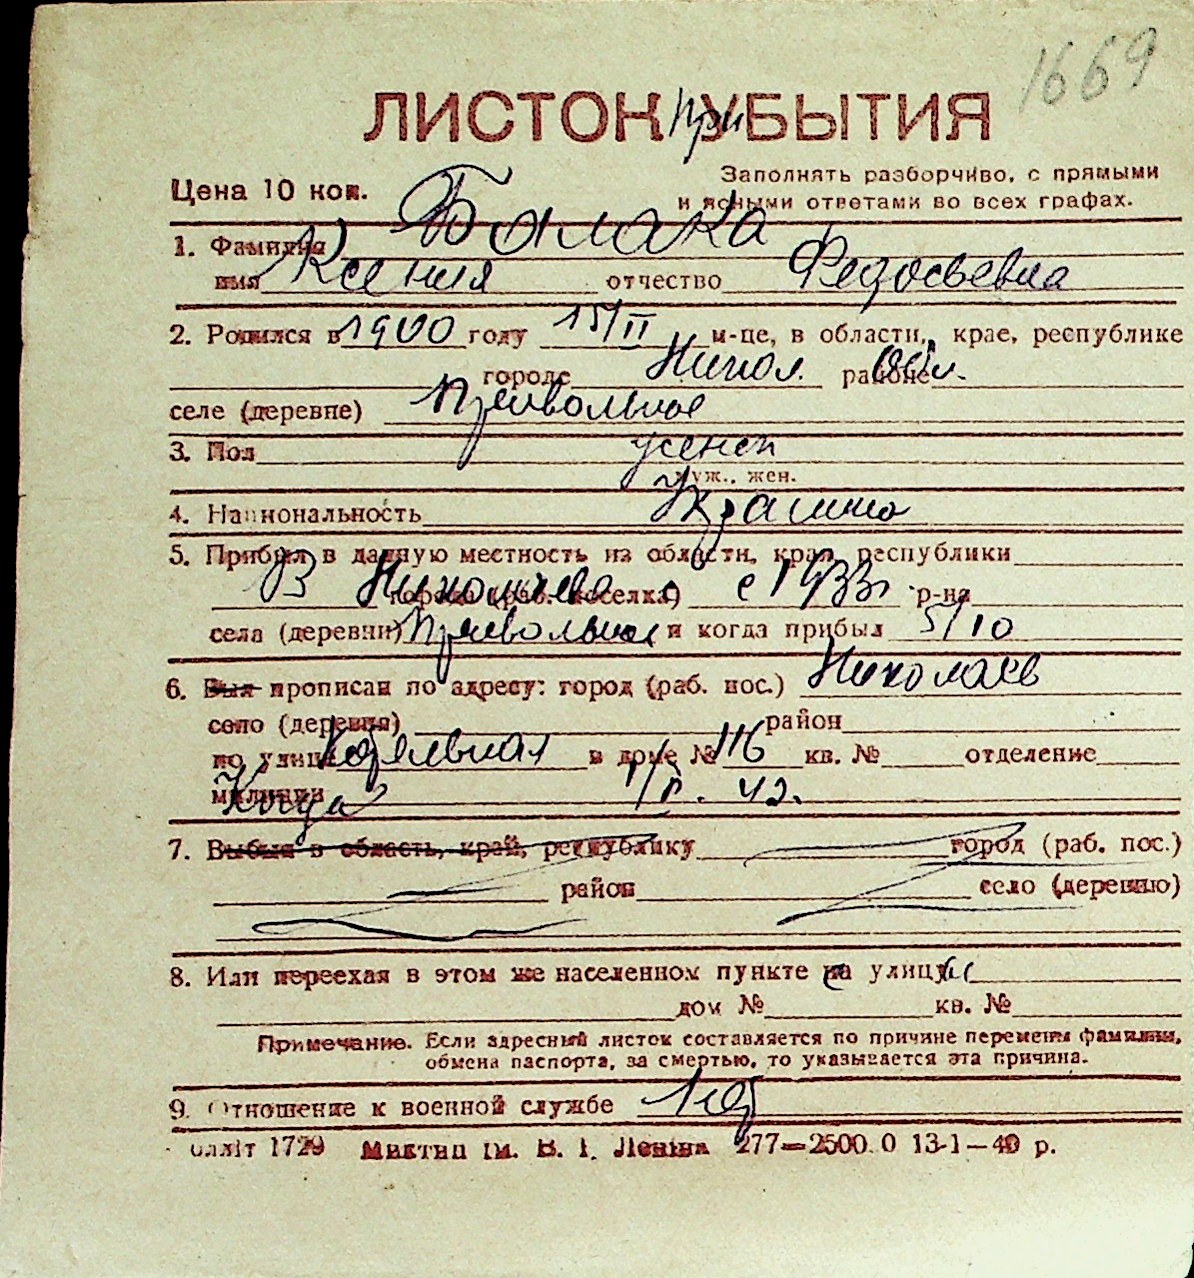 1669
ЛИСТОК При УБЫТИЯ
Цена 10 коп.
Заполнять разборчиво, с прямыми
и ясными ответами во всех графах.
1. Фамилия Балака
имя Ксения отчество Федосьевна
2. Родился в 1900 году 15/II м-це, в области, крае, республике
городе Никол. районе обл.
селе (деревне) Привольное
3. Пол женск
муж., жен.
4. Национальность Украинка
5. Прибыл в данную местность из области, края, республики
В Николаево с 1933 города (раб. поселка) р-на
села (деревни) Привольное и когда прибыл 5/10
6. Был прописан по адресу: город (раб. пос.) Николаев
село (деревня) район
по улице в доме № 116 кв. № отделение
милиции Когда 42.
7. Выбыл в область, край, республику город (раб. пос.)
район село (деревню)
8. Или переехал в этом же населенном пункте на улицу
дом № кв. №
Примечание. Если адресный листок составляется по причине перемены фамилии,
обмена паспорта, за смертью, то указывается эта причина.
9. Отношение к военной службе
олліт 1729 Миктип ім. В. І. Леніна 277—2500.0 13-1—40 р.